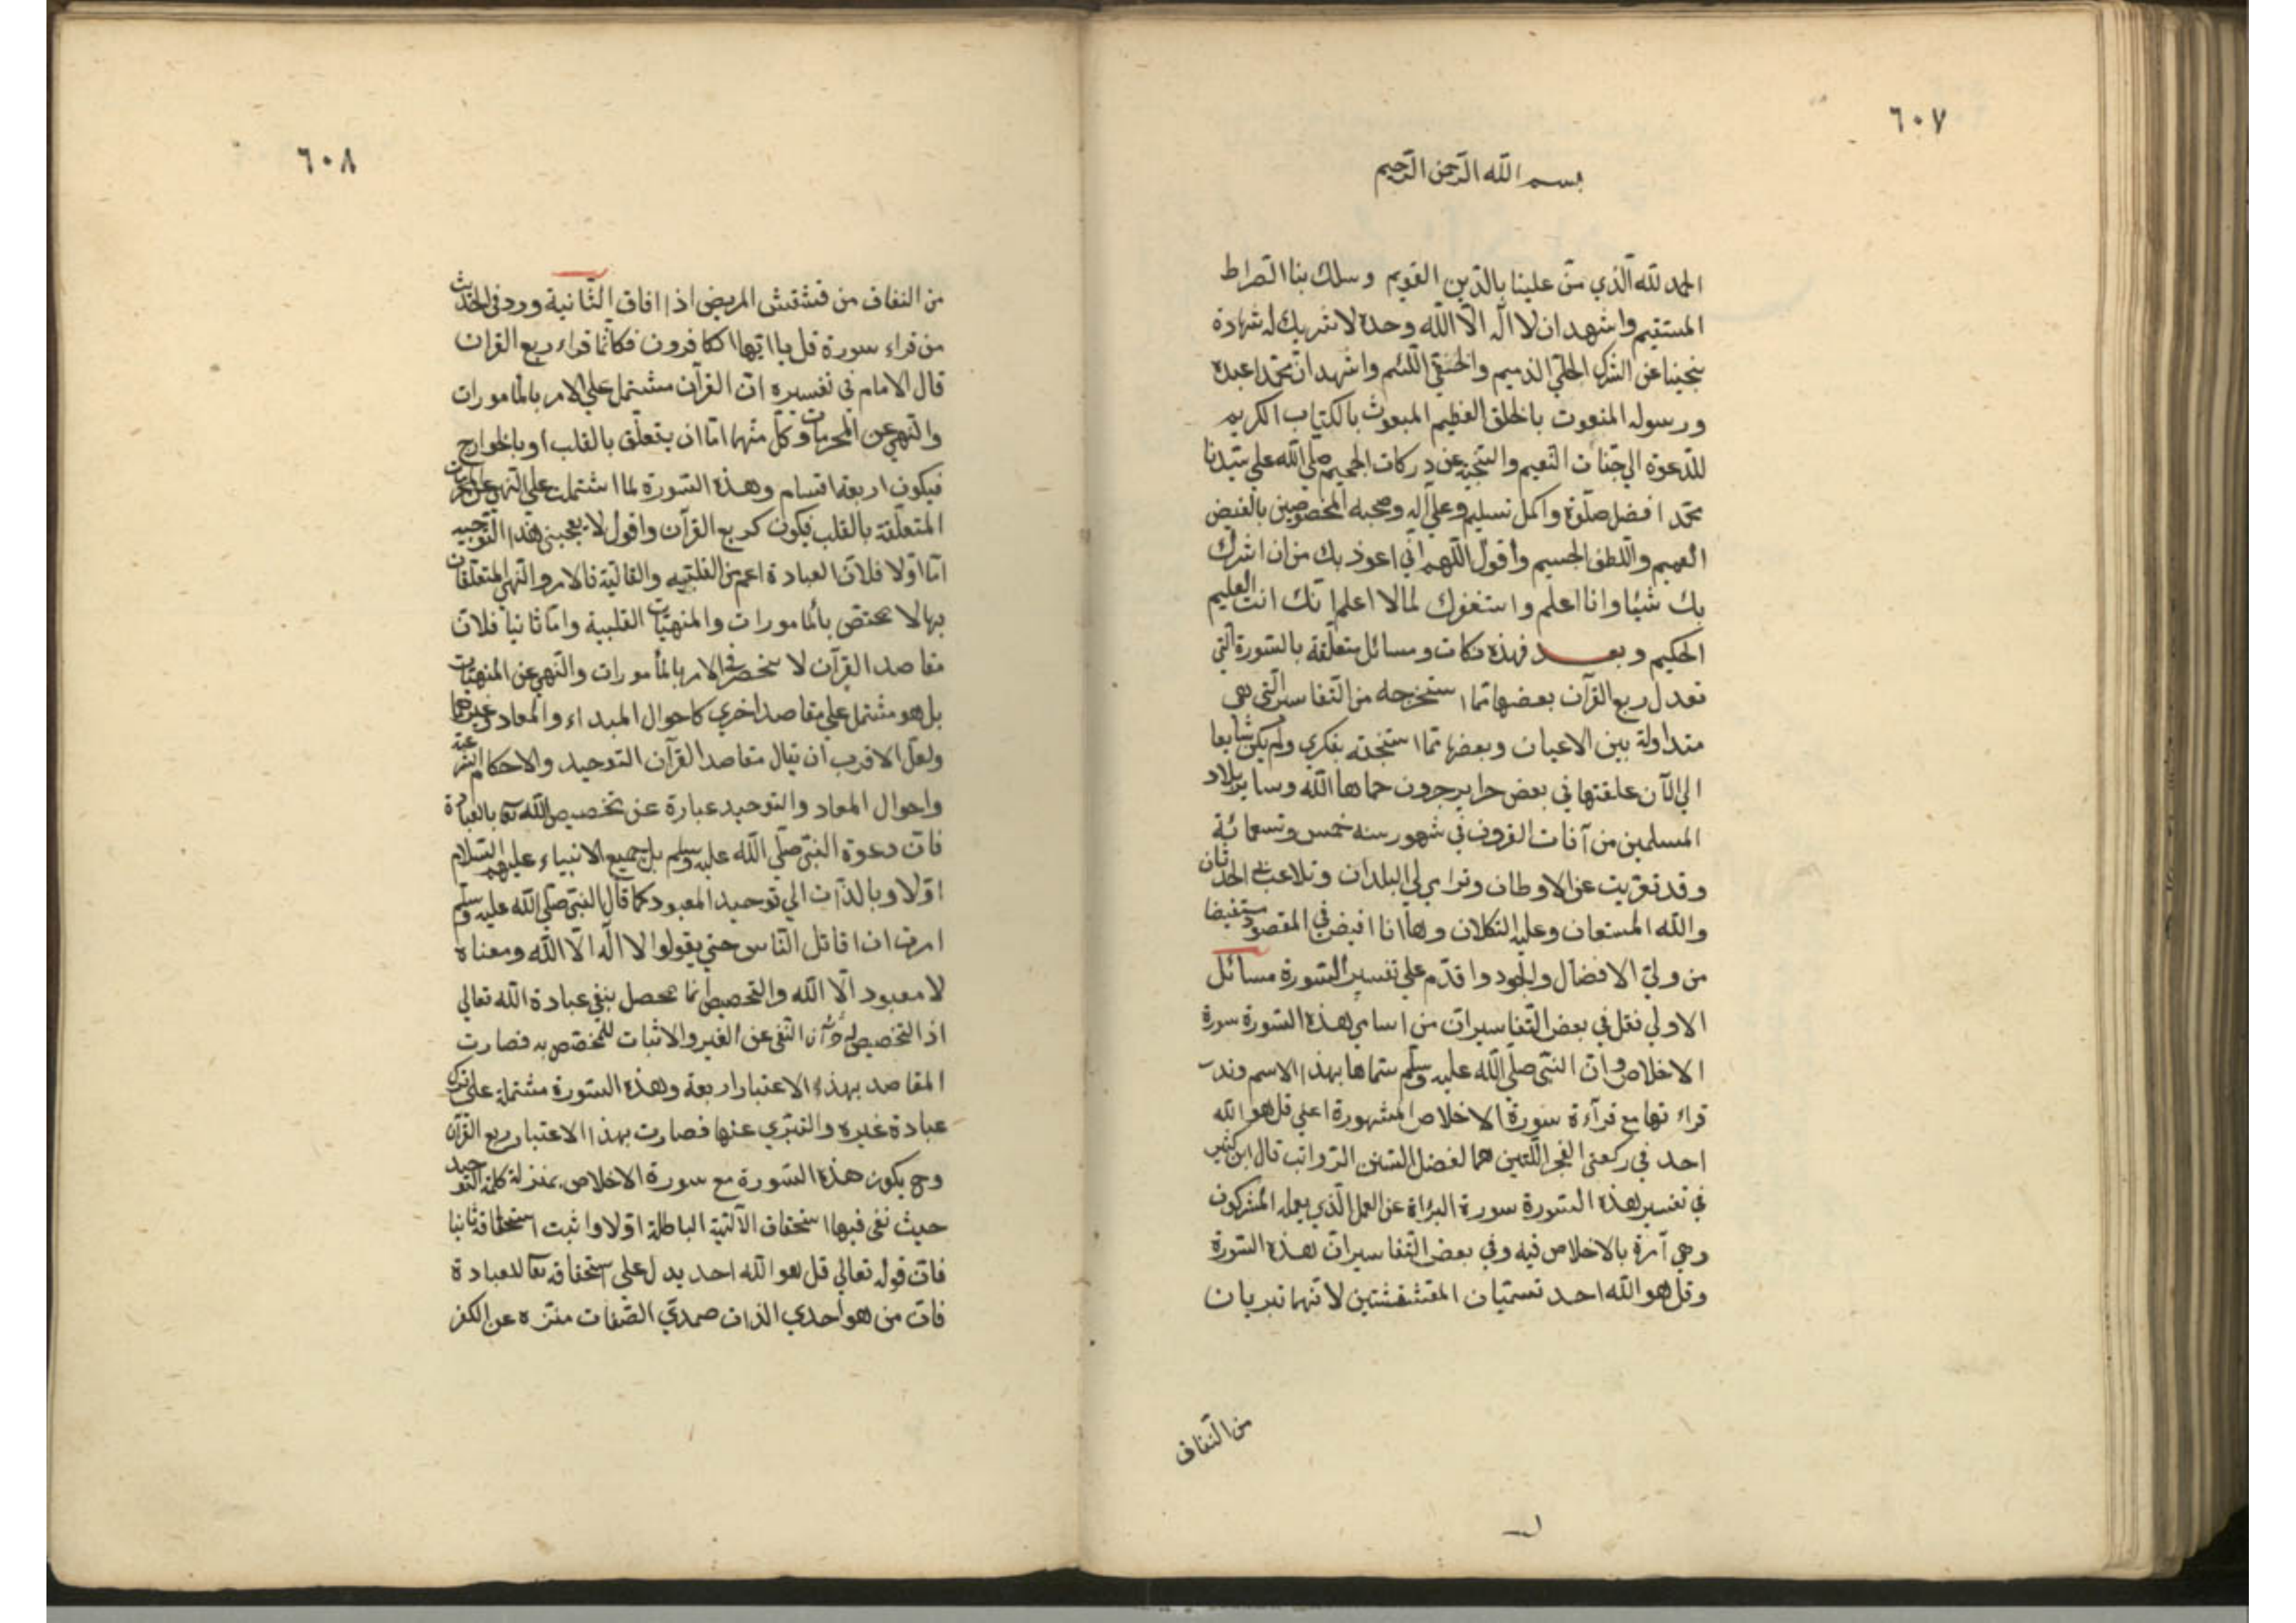 ٦٠٧
بسم الله الرّحمن الرّحيم
الحمد لله الّذي منّ علينا بالدّين القويم وسلك بنا الصّراط
المستقيم واشهد ان لا اله الّا الله وحده لا شريك له شهادة
تنجينا عن الشرك الجليّ الذميم والخفيّ اللئيم واشهد انّ محمّدا عبده
ورسوله المنعوت بالخلق العظيم المبعوث بالكتاب الكريم
للدّعوة الي جنّات النّعيم والتنجية عن دركات الجحيم صلّي الله علي سيّدنا
محمّد افضل صلوة واكمل تسليم وعلي آله وصحبه المخصوصين بالفيض
العميم واللطف الجسيم وأقول اللّهم انّي اعوذ بك من ان اشرك
بك شيئا وانا اعلم واستغفرك لما لا اعلم انّك انت العليم
الحكيم وبعد فهذه نكات ومسائل متعلّقة بالسّورة الّتي
تعدل ربع القرآن بعضها ممّا استخرجه من التّفاسير الّتي هي
متداولة بين الاعيان وبعضها ممّا استنتجته بفكري ولم يكن شايعا
الي الآن علقتها في بعض جراير جرون حماها الله وساير بلاد
المسلمين من آفات القرون في شهور سنه خمس وتسعمائة
وقد تعرّيت عن الاوطان وترامي لي البلدان وتلاعب بي الحدثان
والله المستعان وعليه التكلان وها انا افيض في المقصود مستفيضا
من وليّ الافضال والجود واقدّم علي تفسير السّورة مسائل
الاولي نقل في بعض التّفاسير انّ من اسامي هذه السّورة سورة
الاخلاص وانّ النّبيّ صلّي الله عليه وسلّم سمّاها بهذا الاسم وندب
قراءتها مع قرآءة سورة الاخلاص المشهورة اعني قل هو الله
احد في ركعتي الفجر اللّتين هما افضل السّنن الرّواتب قال ابن كثير
في تفسير هذه السّورة سورة البراءة عن العمل الّذي يعمله المشركون
وهي آمرة بالاخلاص فيه وفي بعض التّفاسير انّ هذه السّورة
وقل هو الله احد تسمّيان المقشقشتين لانّهما تبريان
من النّفاق
٦٠٨
من النفاق من قشقش المريض اذا افاق الثّانية ورد في الحديث
من قراء سورة قل يا ايّها الكافرون فكانّما قراء ربع القران
قال الامام في تفسيره انّ القرآن مشتمل علي الامر بالمأمورات
والنّهي عن المحرمات وكلّ منهما امّا ان يتعلّق بالقلب او بالجوارح
فيكون اربعة اقسام وهذه السّورة لما اشتملت علي النّهي عن المحرمات
المتعلّقة بالقلب فيكون كربع القرآن واقول لا يعجبني هذا التّوجيه
امّا اوّلا فلانّ العبادة اعمّ من القلبيّة والقالبيّة فالامر والنّهي المتعلّقان
بها لا يختصّ بالمأمورات والمنهيّات القلبية وامّا ثانيا فلانّ
مقاصد القرآن لا تنحصر في الامر بالمأمورات والنّهي عن المنهيّات
بل هو مشتمل علي مقاصد اخري كاحوال المبداء والمعاد وغيرهما
ولعلّ الاقرب ان يقال مقاصد القرآن التوحيد والاحكام الشّرعيّة
واحوال المعاد والتوحيد عبارة عن تخصيص الله تعا بالعبادة
فانّ دعوة النّبيّ صلّي الله عليه وسلم بل جميع الانبياء عليهم السّلام
اوّلا وبالذّات الي توحيد المعبود كما قال النّبيّ صلّي الله عليه وسلّم
امرت ان اقاتل النّاس حتي يقولوا لا اله الّا الله ومعناه
لا معبود الّا الله والتخصيص انّما يحصل بنفي عبادة الله تعالي
اذ التخصيص له جزآن النّفي عن الغير والاثبات للمخصّص به فصارت
المقاصد بهذا الاعتبار اربعة وهذه السّورة مشتملة علي ترك
عبادة غيره والتبرّي عنها فصارت بهذا الاعتبار ربع القرآن
وح يكون هذه السّورة مع سورة الاخلاص بمنزلة كلمة التّوحيد
حيث نفي فيها استحقاق الآلهة الباطلة اوّلا واثبت استحقاقه ثانيا
فانّ قوله تعالي قل هو الله احد يدل علي استحقاقه تعا للعبادة
فانّ من هو احديّ الذات صمديّ الصّفات منزّه عن الكفو